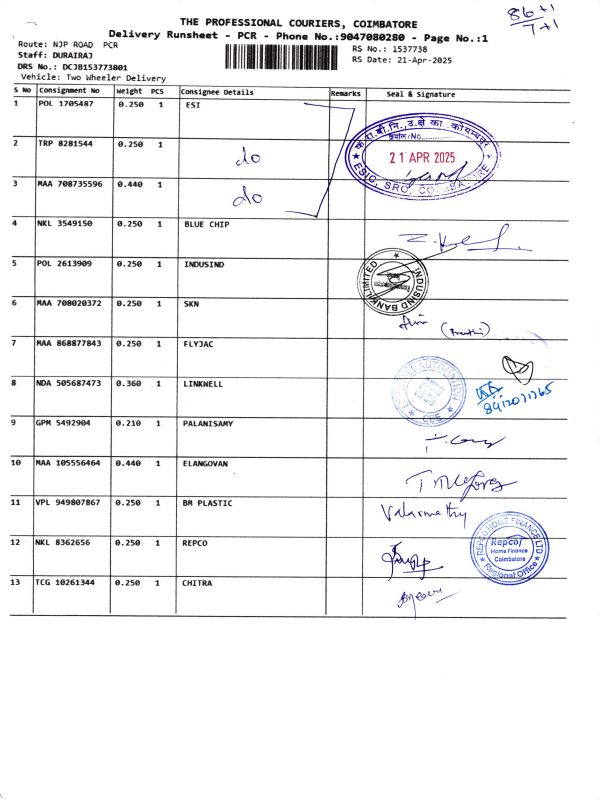 86 +1
7 +1
THE PROFESSIONAL COURIERS, COIMBATORE
Delivery Runsheet - PCR - Phone No.:9047080280 - Page No.:1
Route: NJP ROAD PCR
RS No.: 1537738
Staff: DURAIRAJ
RS Date: 21-Apr-2025
DRS No.: DCJB153773801
Vehicle: Two Wheeler Delivery
S No Consignment No Weight PCS Consignee Details Remarks Seal & Signature
1 POL 1705487 0.250 1 ESI
2 TRP 8281544 0.250 1 do
क.रा.बी.नि.,उ.क्षे.का. कोयम्बत्तूर
21 APR 2025
ESIC, SRO, COIMBATORE
3 MAA 708735596 0.440 1 do
4 NKL 3549150 0.250 1 BLUE CHIP
5 POL 2613909 0.250 1 INDUSIND
INDUSIND BANK LIMITED
6 MAA 708020372 0.250 1 SKN
7 MAA 868877843 0.250 1 FLYJAC
8 NDA 505687473 0.360 1 LINKWELL
AUTOMATION
CBE
9 GPM 5492904 0.210 1 PALANISAMY
10 MAA 105556464 0.440 1 ELANGOVAN
11 VPL 949807867 0.250 1 BM PLASTIC Valarmathy
12 NKL 8362656 0.250 1 REPCO
REPCO HOME FINANCE LTD
Repco
Home Finance
Coimbatore
Regional Office
13 TCG 10261344 0.250 1 CHITRA